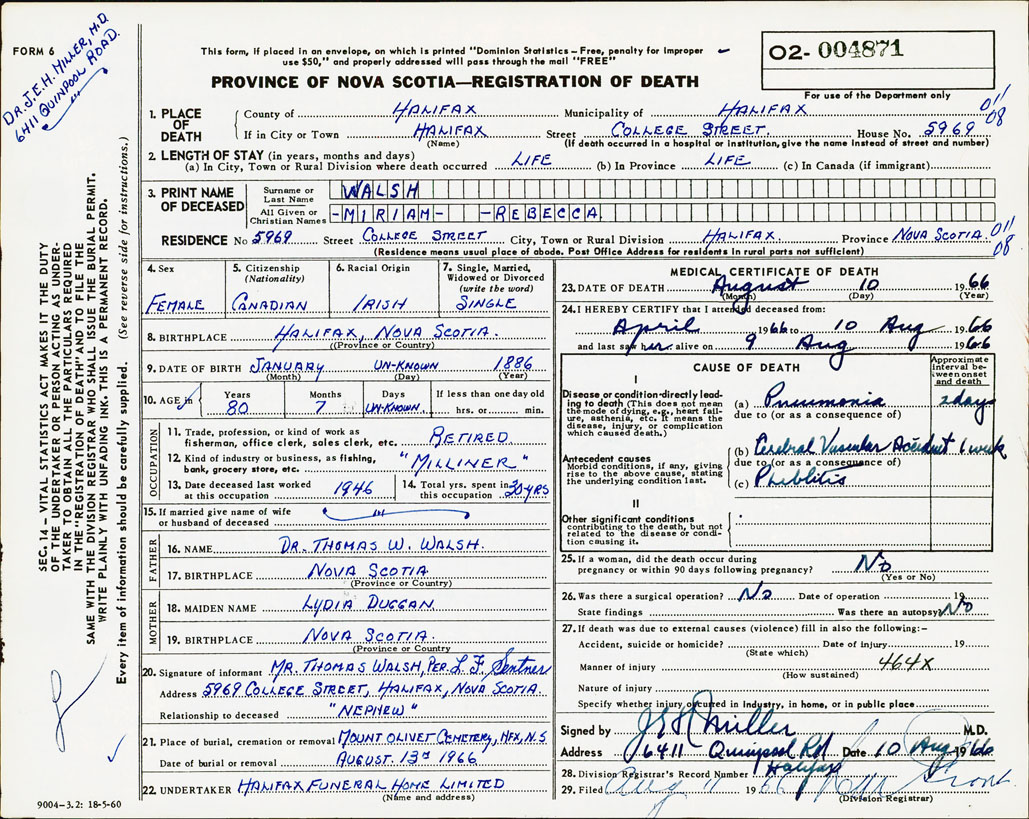 DR. J.E.H. MILLER, M.D.
6411 QUINPOOL ROAD.
FORM 6
This form, if placed in an envelope, on which is printed "Dominion Statistics – Free, penalty for improper
use $50," and properly addressed will pass through the mail "FREE"
02- 004871
For use of the Department only
PROVINCE OF NOVA SCOTIA—REGISTRATION OF DEATH
1. PLACE OF DEATH
County of HALIFAX Municipality of HALIFAX 011
If in City or Town HALIFAX Street COLLEGE STREET. House No. 5969 08
(Name) (If death occurred in a hospital or institution, give the name instead of street and number)
2. LENGTH OF STAY (in years, months and days)
(a) In City, Town or Rural Division where death occurred LIFE (b) In Province LIFE (c) In Canada (if immigrant)
3. PRINT NAME OF DECEASED
Surname or Last Name WALSH
All Given or Christian Names -MIRIAM- -REBECCA
RESIDENCE No 5969 Street COLLEGE STREET City, Town or Rural Division HALIFAX. Province NOVA SCOTIA 011
08
(Residence means usual place of abode. Post Office Address for residents in rural parts not sufficient)
4. Sex FEMALE
5. Citizenship (Nationality) CANADIAN
6. Racial Origin IRISH
7. Single, Married, Widowed or Divorced (write the word) SINGLE
8. BIRTHPLACE HALIFAX, NOVA SCOTIA.
(Province or Country)
9. DATE OF BIRTH JANUARY UN-KNOWN 1886
(Month) (Day) (Year)
10. AGE in Years Months Days If less than one day old
80 7 UN-KNOWN hrs. or min.
OCCUPATION
11. Trade, profession, or kind of work as
fisherman, office clerk, sales clerk, etc. RETIRED
12. Kind of industry or business, as fishing,
bank, grocery store, etc. "MILLINER"
13. Date deceased last worked at this occupation 1946
14. Total yrs. spent in this occupation 30 YRS
15. If married give name of wife
or husband of deceased
FATHER
16. NAME DR. THOMAS W. WALSH.
17. BIRTHPLACE NOVA SCOTIA
(Province or Country)
MOTHER
18. MAIDEN NAME LYDIA DUGGAN
19. BIRTHPLACE NOVA SCOTIA.
(Province or Country)
20. Signature of informant MR. THOMAS WALSH, PER. L. F. Sentner
Address 5969 COLLEGE STREET, HALIFAX, NOVA SCOTIA.
Relationship to deceased "NEPHEW"
21. Place of burial, cremation or removal MOUNT OLIVET CEMETERY, HFX, N.S
Date of burial or removal AUGUST. 13th 1966
22. UNDERTAKER HALIFAX FUNERAL HOME LIMITED
(Name and address)
9004-3.2: 18-5-60
MEDICAL CERTIFICATE OF DEATH
23. DATE OF DEATH August 10 1966
(Month) (Day) (Year)
24. I HEREBY CERTIFY that I attended deceased from:
April 1966 to 10 Aug 1966
and last saw her alive on 9 Aug 1966
CAUSE OF DEATH
Approximate interval between onset and death
I
Disease or condition directly leading to death (This does not mean the mode of dying, e.g., heart failure, asthenia, etc. It means the disease, injury, or complication which caused death.)
(a) Pneumonia 2 days
due to (or as a consequence of)
Antecedent causes
Morbid conditions, if any, giving rise to the above cause, stating the underlying condition last.
(b) Cerebral Vascular Accident 1 week
due to (or as a consequence of)
(c) Phlebitis
II
Other significant conditions
contributing to the death, but not related to the disease or condition causing it.
25. If a woman, did the death occur during
pregnancy or within 90 days following pregnancy? No
(Yes or No)
26. Was there a surgical operation? No Date of operation 19
State findings Was there an autopsy? No
27. If death was due to external causes (violence) fill in also the following:–
Accident, suicide or homicide? Date of injury 19
(State which)
Manner of injury 464X
(How sustained)
Nature of injury
Specify whether injury occurred in industry, in home, or in public place
Signed by JEH Miller M.D.
Address 6411 Quinpool Rd Date 10 Aug 1966
Halifax
28. Division Registrar's Record Number
29. Filed Aug 11 1966
(Division Registrar)
SEC. 14 – VITAL STATISTICS ACT MAKES IT THE DUTY
OF THE UNDERTAKER OR PERSON ACTING AS UNDER-
TAKER TO OBTAIN ALL THE PARTICULARS REQUIRED
IN THE "REGISTRATION OF DEATH" AND TO FILE THE
SAME WITH THE DIVISION REGISTRAR WHO SHALL ISSUE THE BURIAL PERMIT.
WRITE PLAINLY WITH UNFADING INK. THIS IS A PERMANENT RECORD.
Every item of information should be carefully supplied. (See reverse side for instructions.)